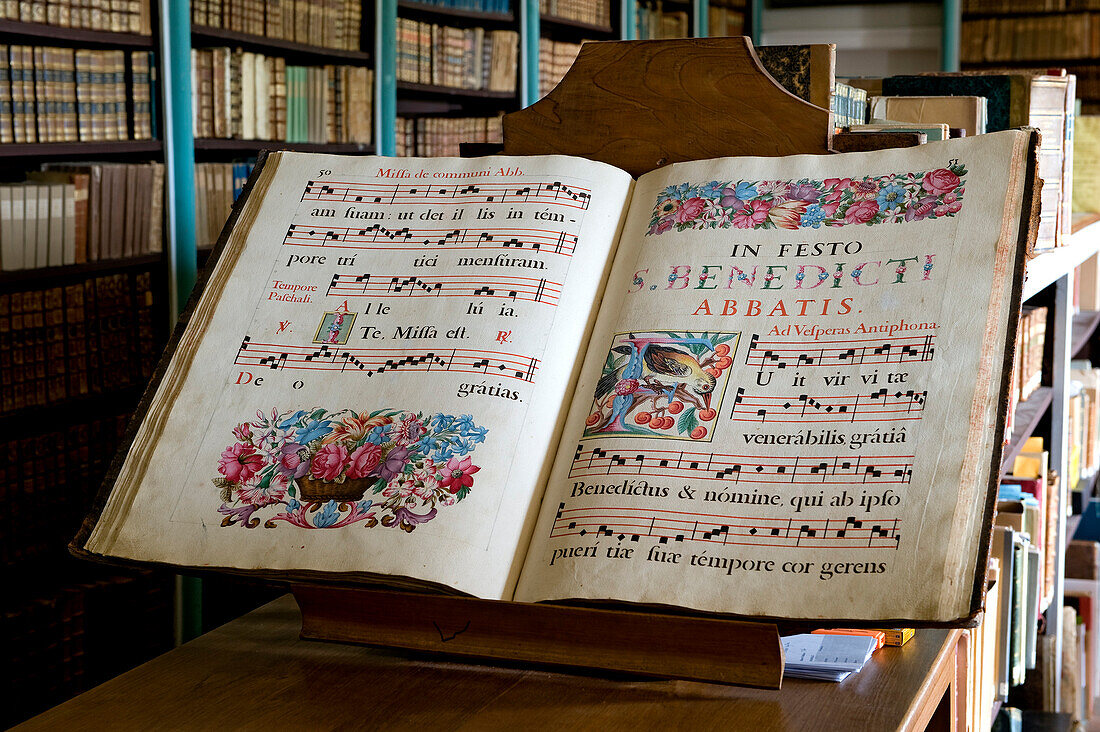 50
Missa de communi Abb.
am suam: ut det il lis in tém-
pore trí tici mensúram.
Tempore
Paschali.
Al le lú ia.
℣ Ite, Missa est. ℟
De o grátias.
51
IN FESTO
S. BENEDICTI
ABBATIS.
Ad Vesperas Antiphona.
FUit vir vi tæ
venerábilis, grátiâ
Benedíctus & nómine, qui ab ipso
puerí tiæ suæ témpore cor gerens